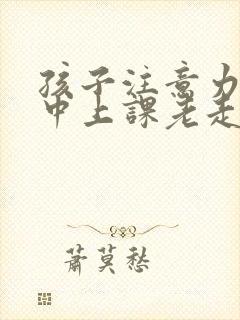 孩子注意力
中上課老走
蕭莫愁